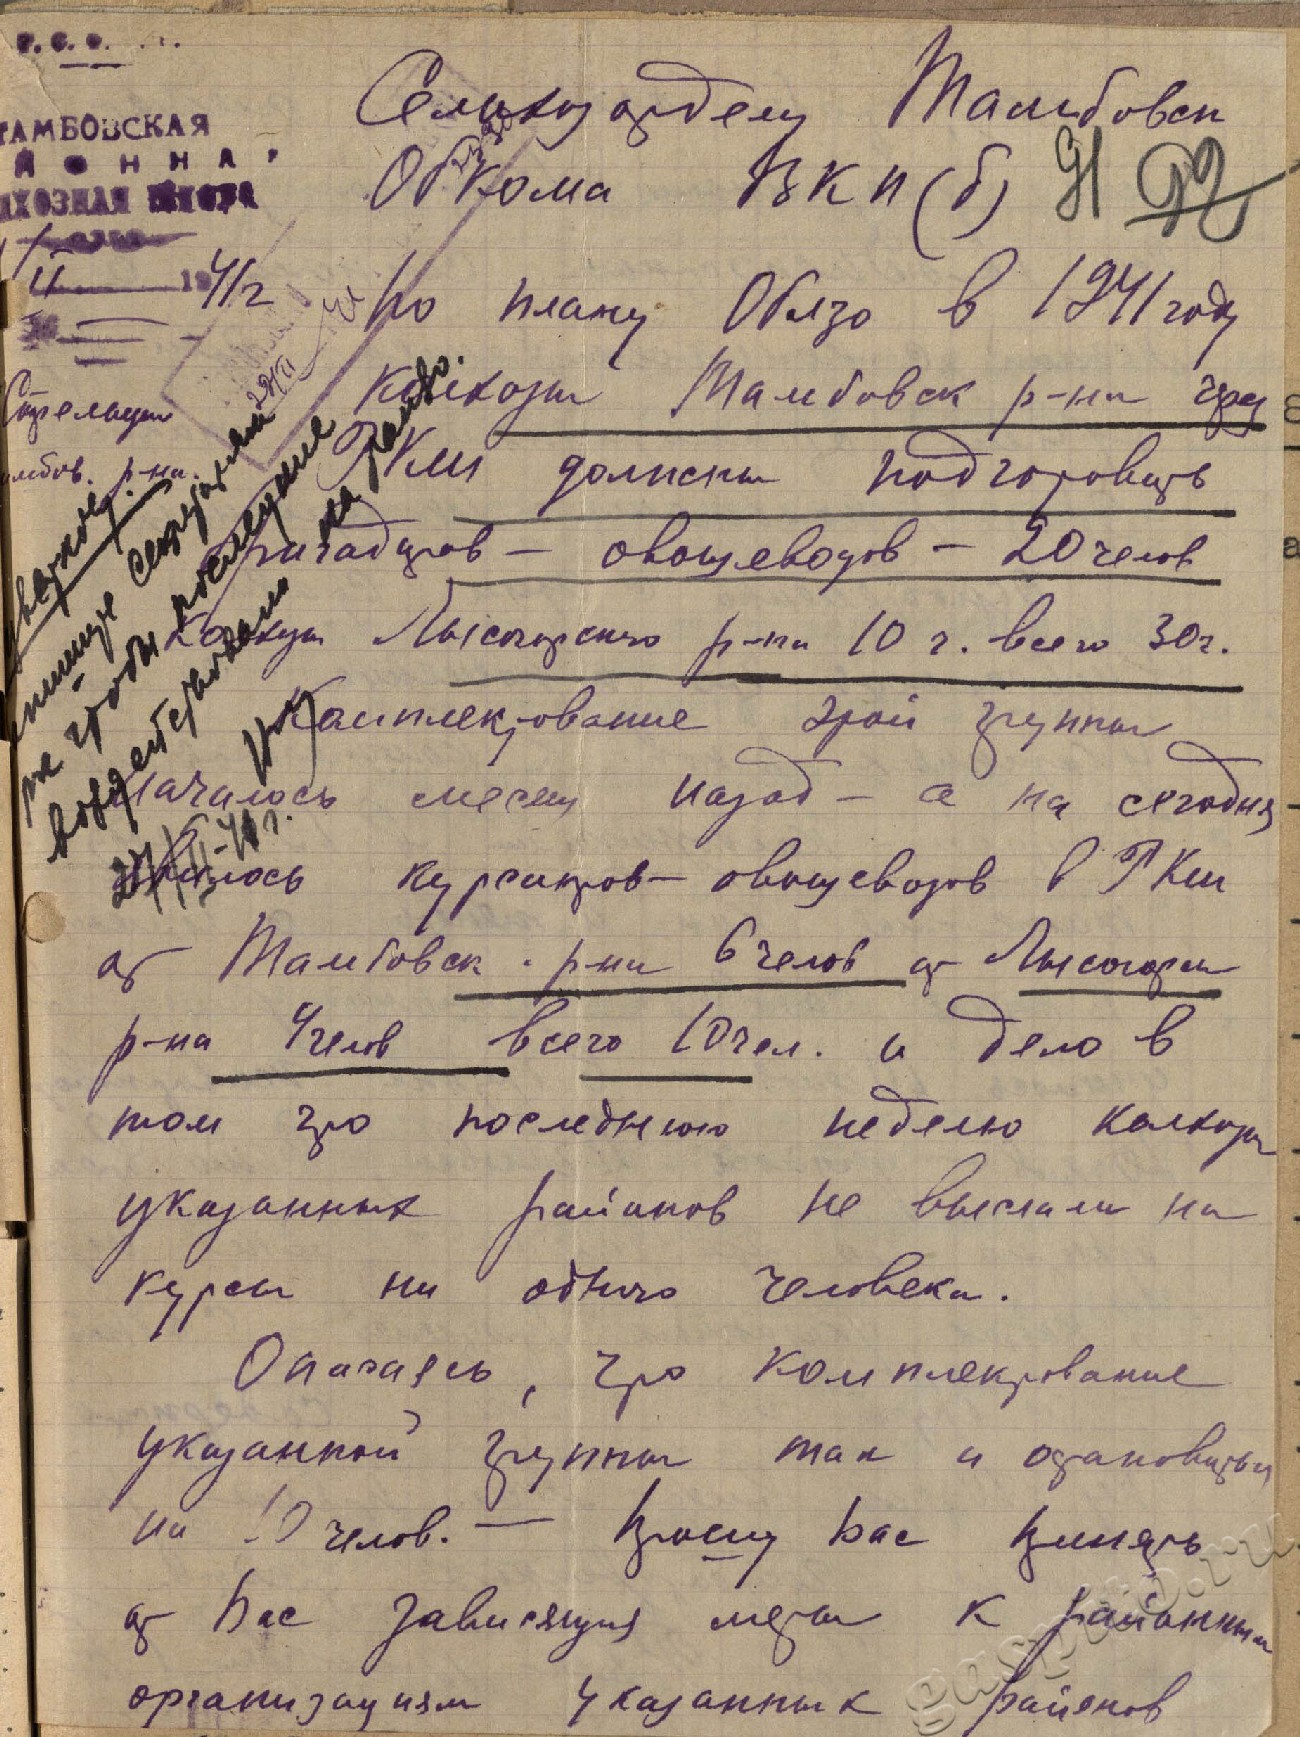 Р. С. Ф.
ТАМБОВСКАЯ
ХОЗНАЯ ШКОЛА
II 1941 г
р-на.
Сельхозотделу Тамбовск
Обкома ВКП(б) 91 92
По плану Облзо в 1941 году
колхозы Тамбовск р-на чрез
РКШ должны подготовить
бригадиров – овощеводов – 20 челов
Колхозы Лысогорского р-на 10 ч. всего 30 ч.
Комплектование этой группы
началось месяц назад – а на сегодня
явилось курсантов – овощеводов в РКШ
от Тамбовск. р-на 6 челов от Лысогорск
р-на 4 челов всего 10 чел. и дело в
том что последнюю неделю колхозы
указанных районов не выслали на
курсы ни одного человека.
Опасаясь, что комплектование
указанной группы так и остановиться
на 10 челов. – Прошу Вас принять
от Вас зависящия меры к районным
организациям указанных районов
секретарям
чтобы последние
воздействовали на
27/II-41 г.
gaspito.ru